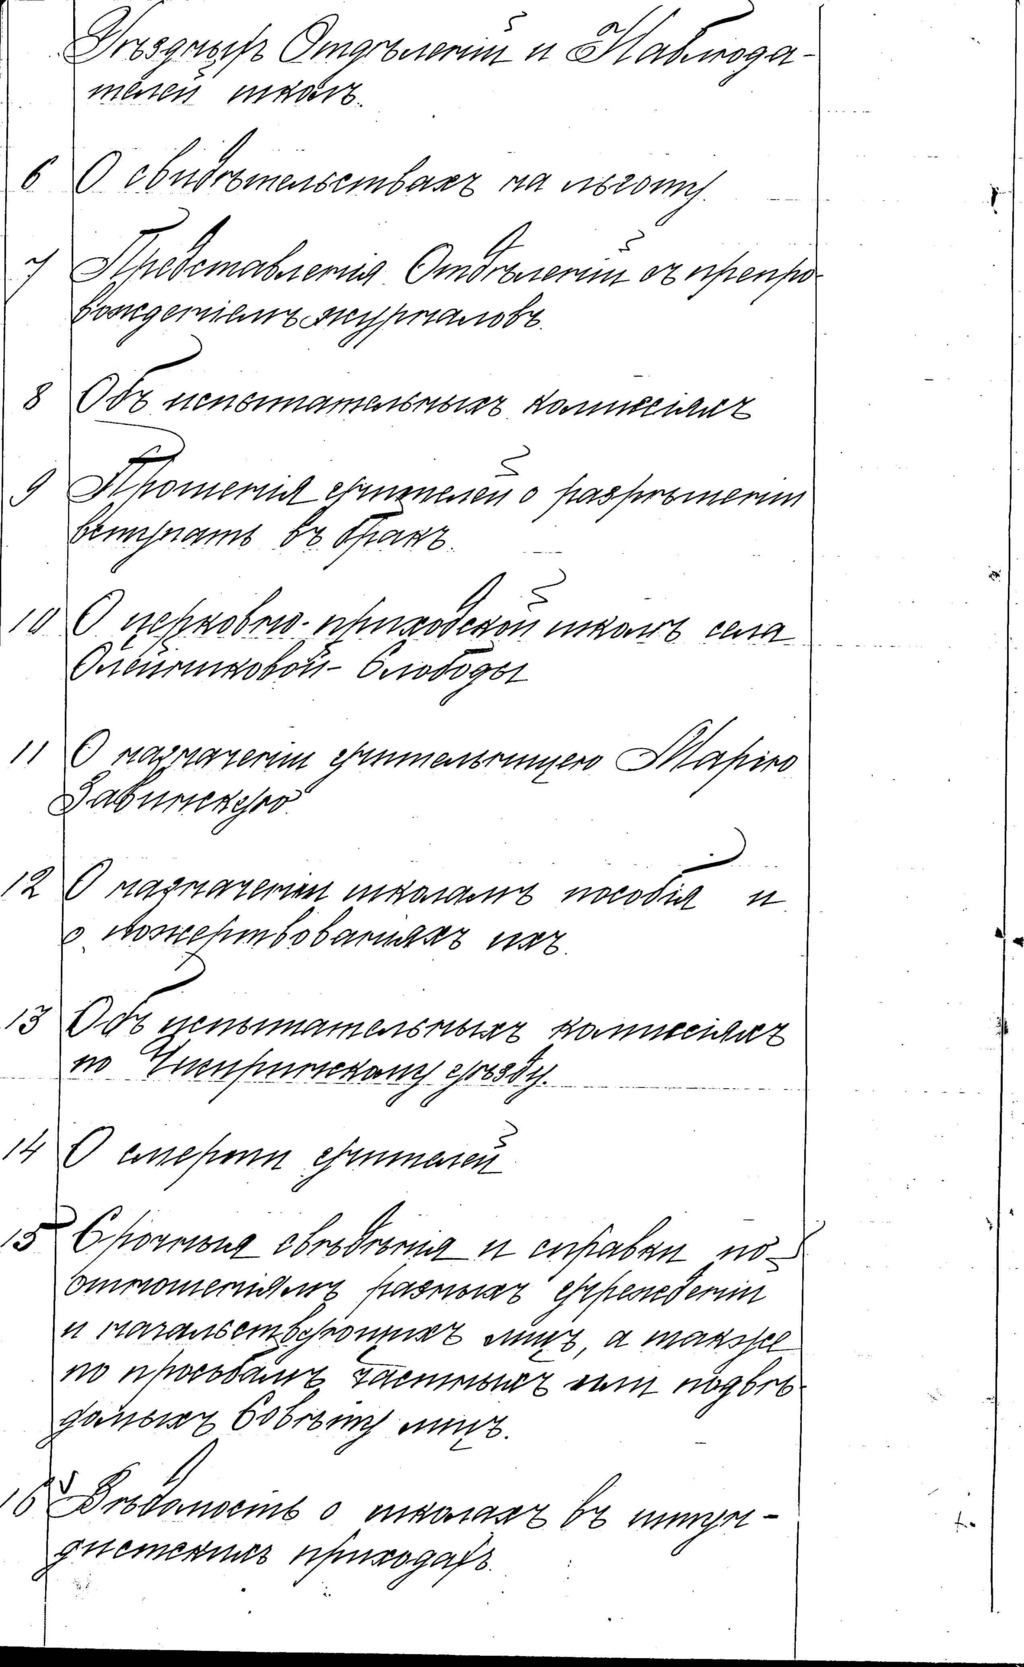 Уѣздныхъ Отдѣленій и Наблюда-
телей школъ.
6 О свидѣтельствахъ на льготу.
7 Представленія Отдѣленій съ препро-
вожденіемъ журналовъ.
8 Объ испытательныхъ комиссіяхъ
9 Прошенія учителей о разрѣшеніи
вступать въ бракъ.
10 О церковно-приходской школѣ села
Олейниковой-Слободы
11 О назначеніи учительницею Марію
Завинскую
12 О назначеніи школамъ пособія и
о пожертвованіяхъ ихъ.
13 Объ испытательныхъ комиссіяхъ
по Чигиринскому уѣзду.
14 О смерти учителей
15 Срочныя свѣдѣнія и справки по
отношеніямъ разныхъ учрежденій
и начальствующихъ лицъ, а также
по просьбамъ частныхъ или подвѣ-
домыхъ Совѣту лицъ.
16 Вѣдомость о школахъ въ штун-
дистскихъ приходахъ.